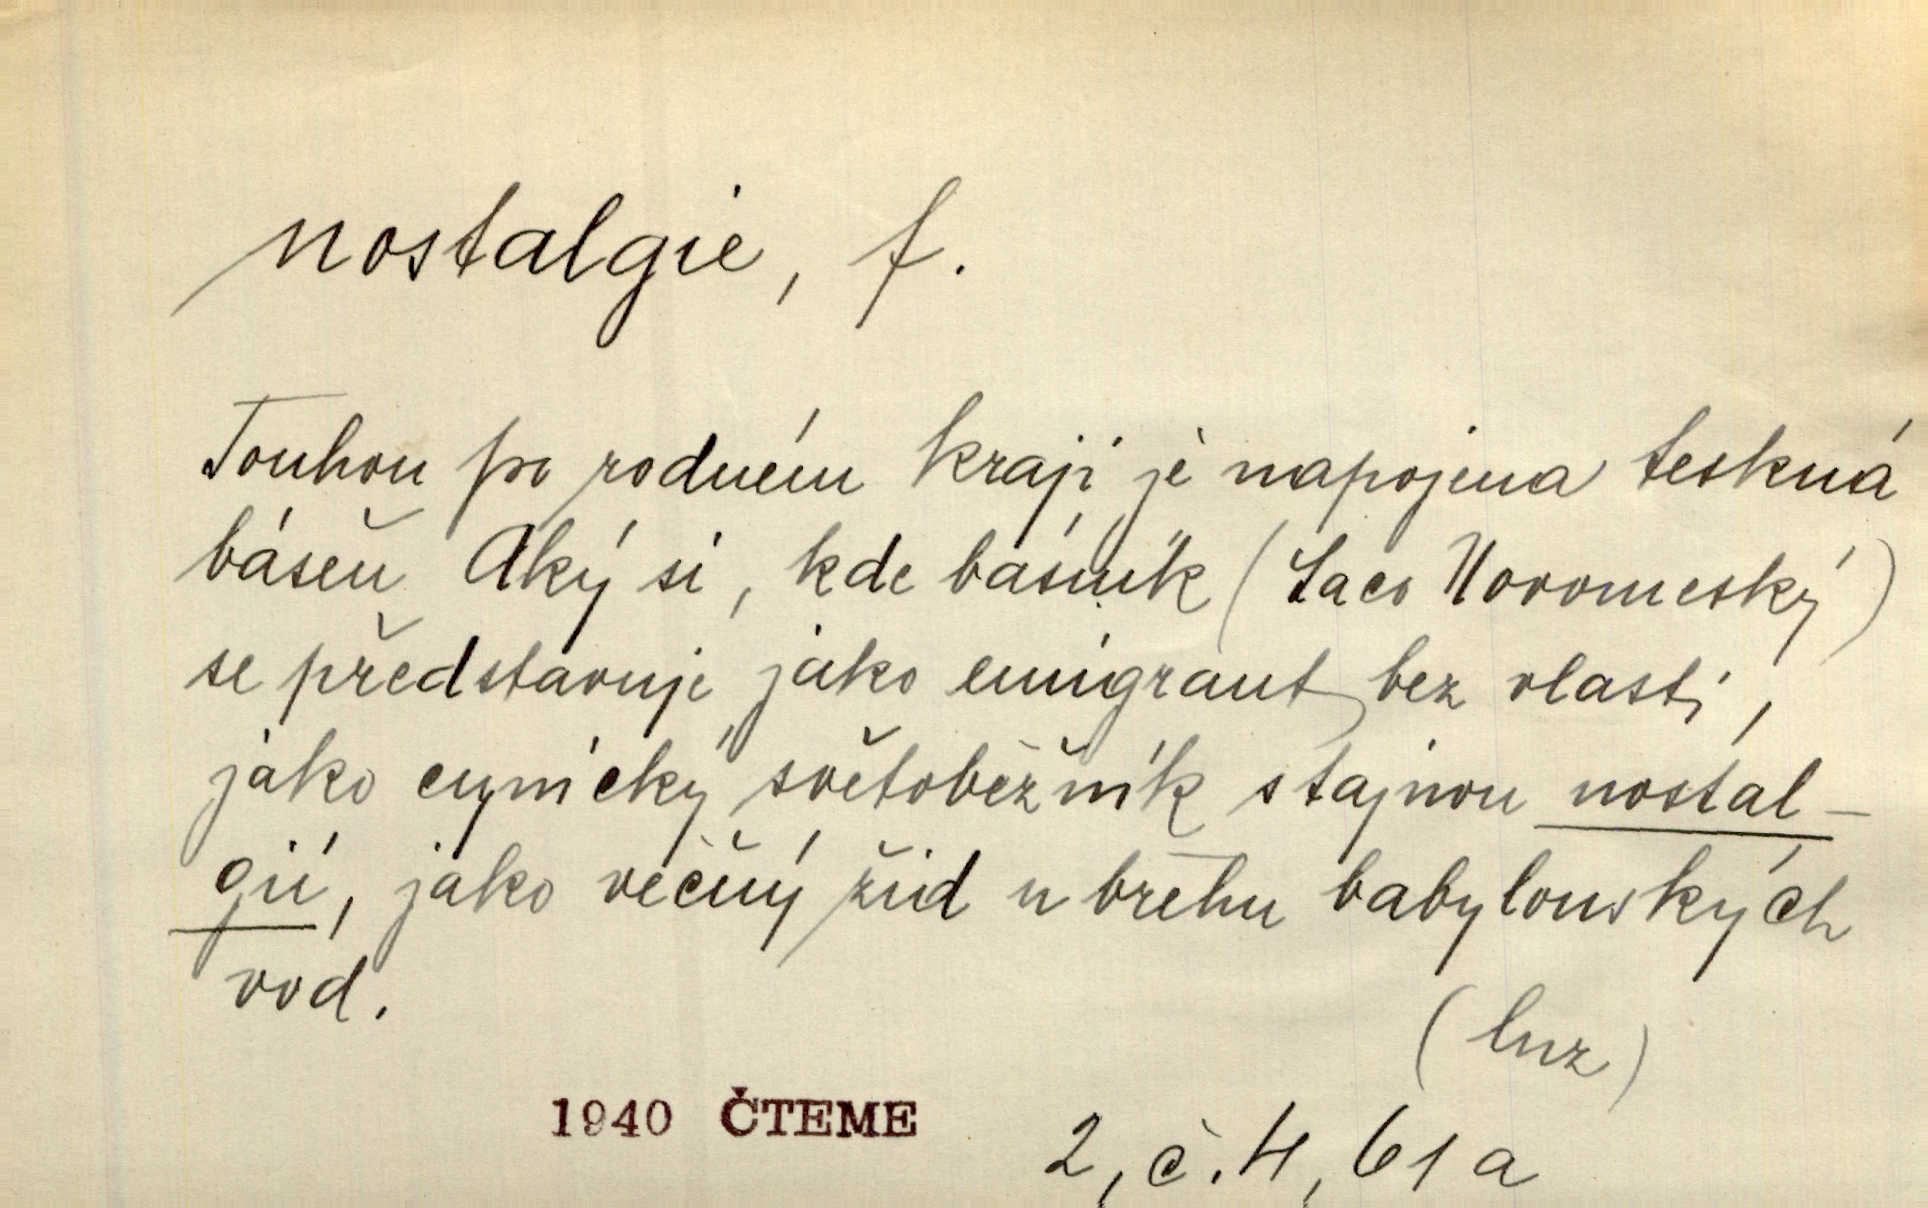 nostalgie, f.
Touhou po rodném kraji je napojena teskná
báseň Aký si, kde básník (Laco Novomeský)
se představuje jako emigrant bez vlasti,
jako cynický světoběžník s tajnou nostal-
gií, jako věčný žid u břehu babylonských
vod.
(luz)
1940 ČTEME
2, č. 4, 61a